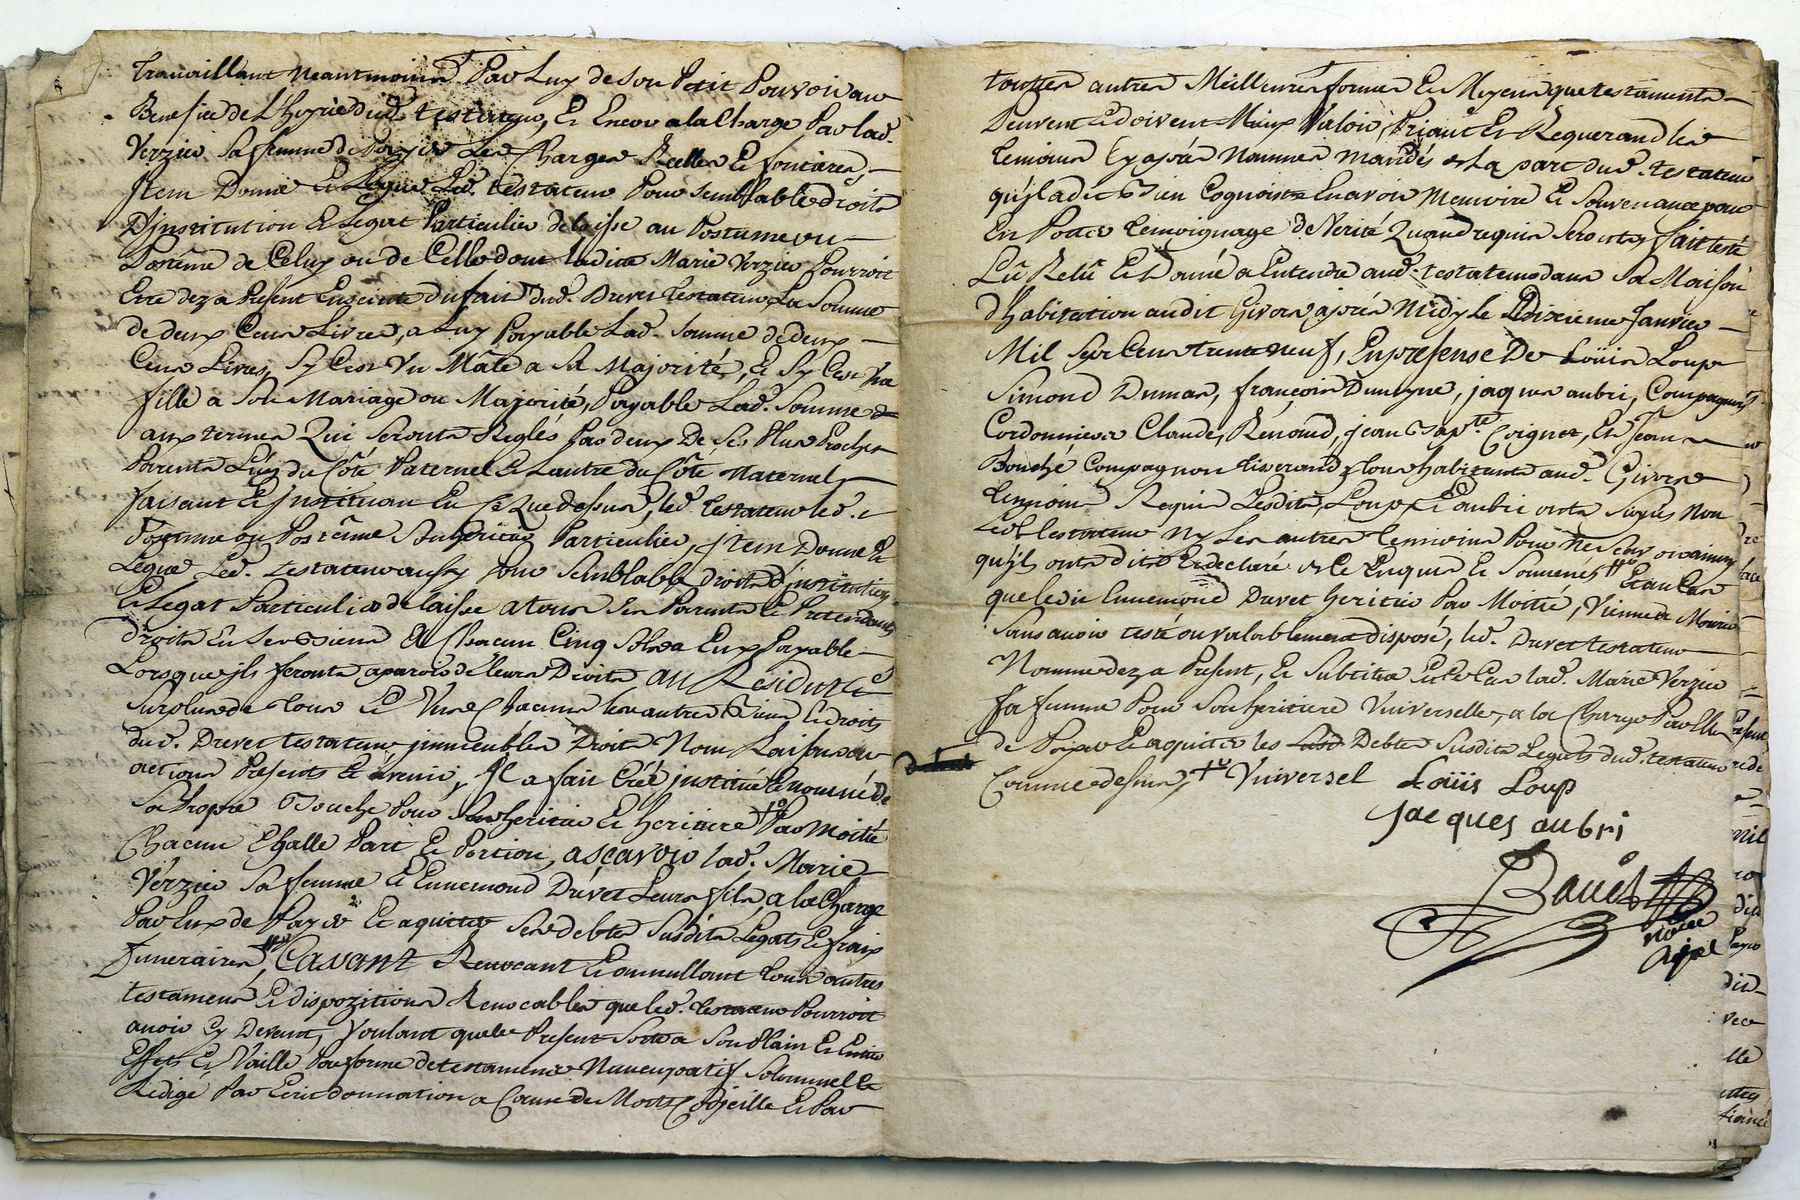 travaillant neantmoins Par Luy de son Petit Pouvoir au
Benefice de L'hoyrie dud. testateur, Et Encor a la Charge Par lad.
Verzier sa femme de Payer Les Charges Réelles Et foncieres,
Jtem Donne Et Legue Led. testateur Pour semblable droits
D'jnstitution Et Legat Particulier delaisse au Postume ou
Postême de Celuy ou de Celle dont ladite Marie Verzier Pourroit
Etre deza Present Enceinte du fait dud. Drevet testateur, La Somme
de deux Cens Livres, a Luy Payable Lad. Somme de deux
Cens Livres, sy C'est Un Mâle a sa Majorité, Et sy C'est Une
fille a son Mariage ou Majorité, Payable Lad. Somme
aux termes Qui seronts Reglés Par deux De ses Plus Proches
Parents L'un du Côté Paternel Et Lautre du Côté Maternel,
faisant Et jnstituant En Ce Que dessus, led. testateur led.
Postume ou Postême son heritier Particulier, jtem Donne Et
Legue Led. testateur aussy Pour semblable droits d'jnstitution
Et Legat Particulier delaisse a tous ses Parents Et Pretendants
droits En ses Biens Et Chacun Cinq sols a Eux Payable
Lorsque jls feronts aparoir de leurs Droits au Residu Et
surplus de tous Et Uns Chacuns les autres Biens Et droits
dud. Drevet testateur, jmmeubles Droits Noms Raisons ou
actions Presents Et avenir, Jl a fait Créé jnstitué Et nommé de
sa Propre Bouche Pour ses heritier Et heritiere Par Moitié
Chacun Egalle Part Et Portion, ascavoir lad. Marie
Verzier sa femme Et Ennemond Drevet Leurs fils, a la Charge
Par Eux de Payer Et aquitter ses debtes susdits Legats Et frais
funeraires, Cassant Revocant Et annullant tous autres
testamens Et dispozitions Revocables que led. testateur Pourroit
avoir Cy Devant, Voulant que le Present sorte a Son Plain Et Entier
Effets Et Vaille Par forme de testament Nuncupatif Solemnelle
Redigé Par Ecrit donnation a Cause de Mort, Codicille Et Par
touttes autres Meilleures formes Et Moyens que testaments
Peuvent Et doivent Mieux Valoir, Priant Et Requerand les
temoins Cy aprés Nommés mandés de La part dud. testateur
qu'jl a dit Bien Cognoistre En avoir Memoire Et Souvenance pour
En Porter temoignage de Verité Quand requis serontes, fait testé
Lû Relû Et Donné a Entendre aud. testateur dans sa Maison
d'habitation audit Givors aprés Midy Le Dixieme Janvier
Mil Sept Cens trente neuf, En presense De Loüis Loup
Simond Dumas, françois Duvigne, jaques aubri, Compagnons
Cordonniers Claude Rénaud, jean Bapte. Coignet, Et Jean
Bouché Compagnon tisserand, tous habitants aud. Givors
temoins Requis Lesdits Loup Et aubri onts Signés Non
led. testateur Ny Les autres temoins Pour Ne scavoir ainsy
qu'jls onts dit Et declaré de Ce Enquis Et Sommés Et au Cas
que ledit Ennemond Drevet heritier Par Moitié, Vienne a Mourir
Sans avoir testé ou valablement disposé, led. Drevet testateur
Nomme deza Present, Et Substitue En Ce Cas lad. Marie Verzier
Sa femme Pour son heritiere Universelle, a la Charge Par Elle
de Payer Et aquitter les Debtes susdits Legats dud. testateur
Comme dessus, Universel Loüis Loup
jacques aubri